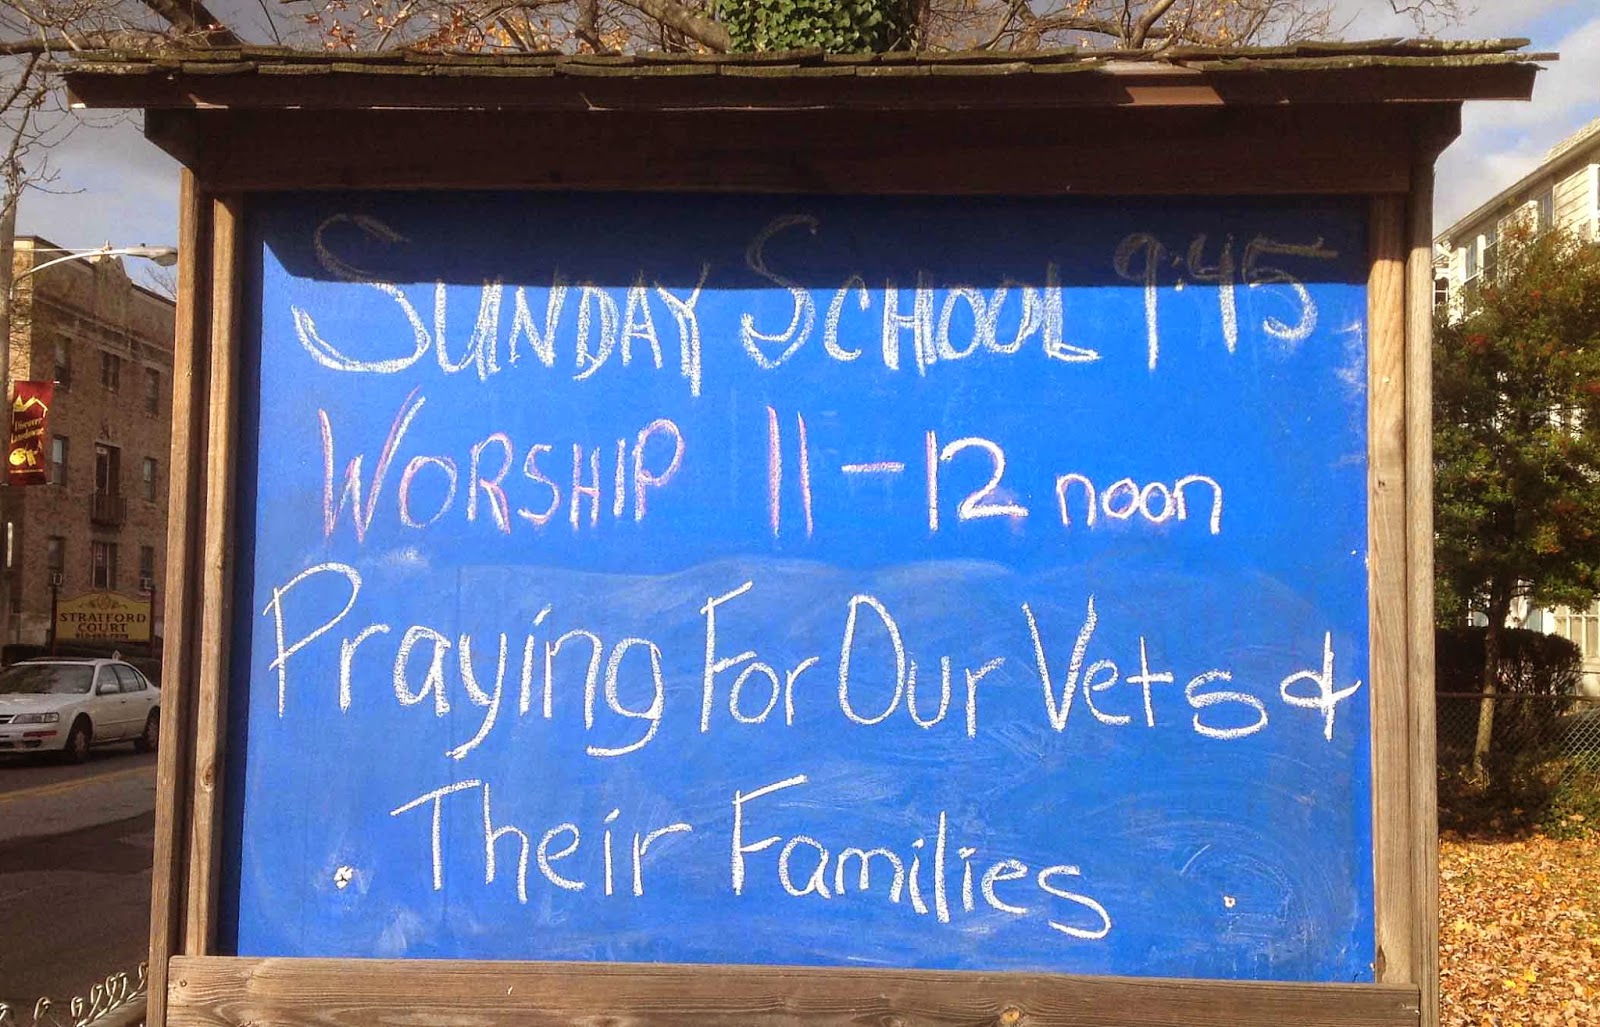 SUNDAY SCHOOL 9:45
WORSHIP 11-12 noon
Praying For Our Vets &
Their Families
Discover
Lansdowne
STRATFORD
COURT